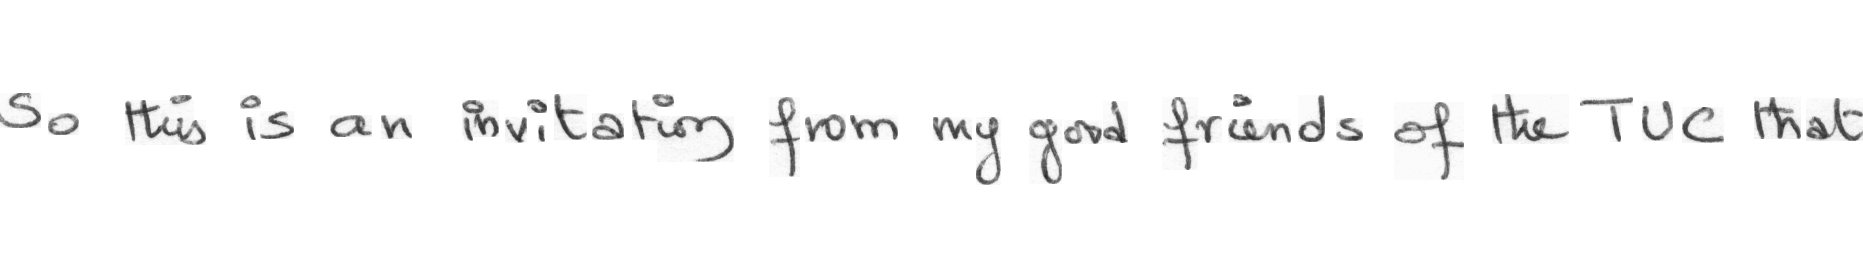 So this is an invitation from my good friends of the TUC that